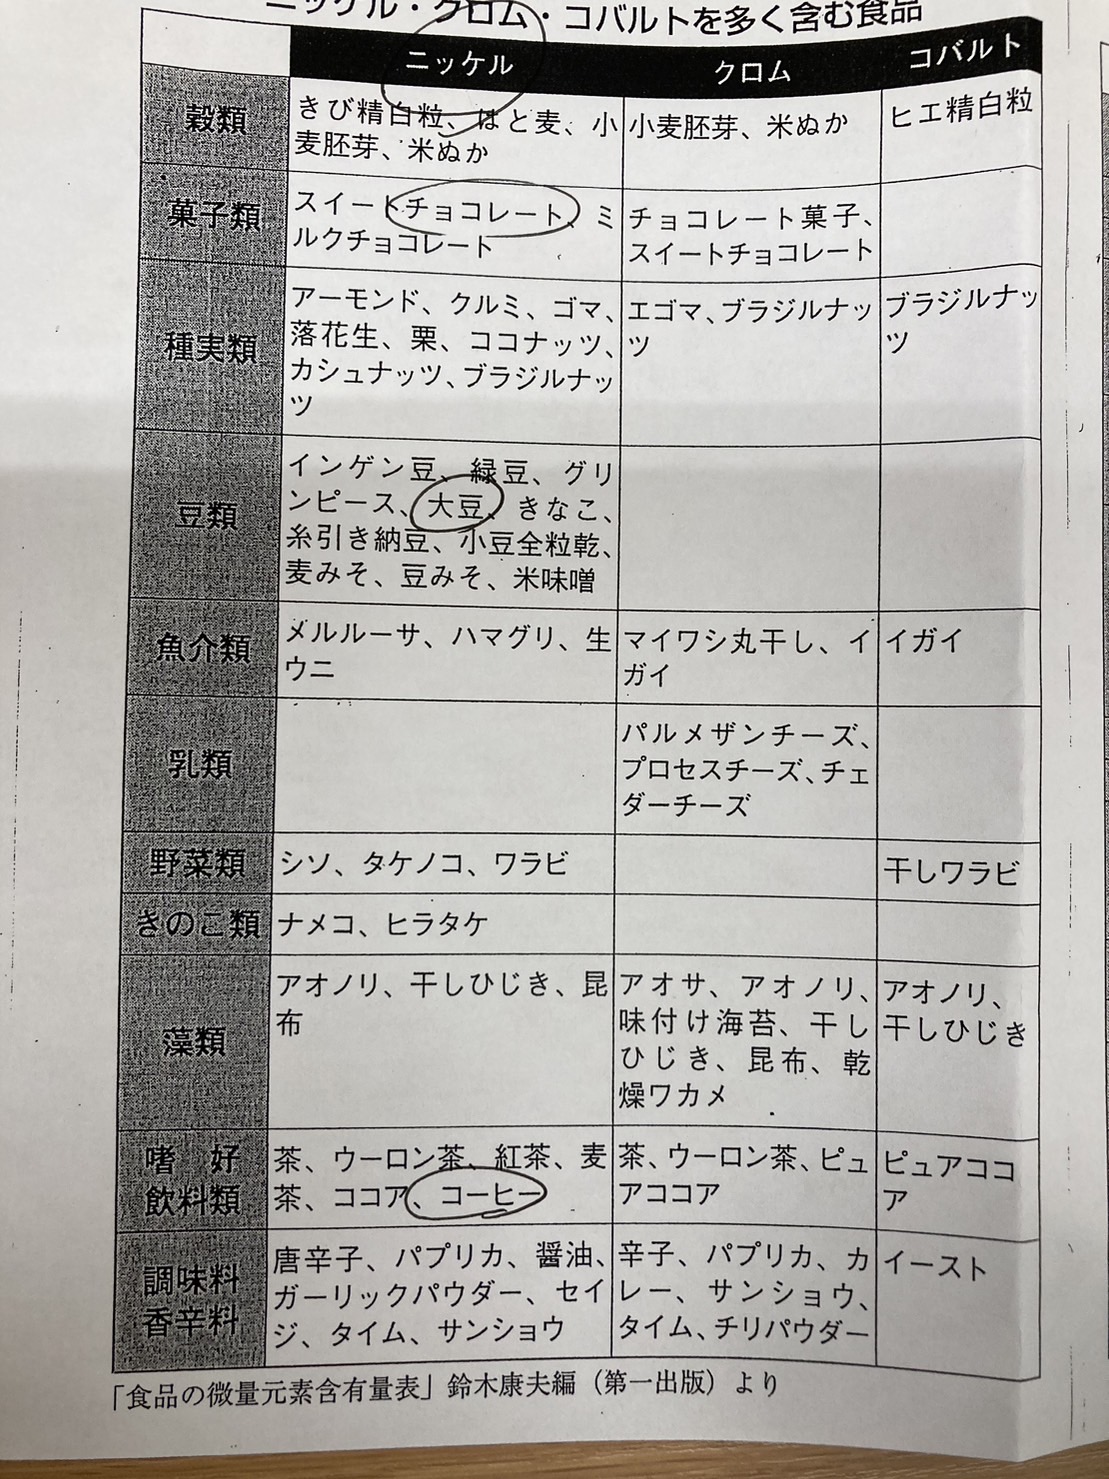 ニッケル・クロム・コバルトを多く含む食品
ニッケル
クロム
コバルト
穀類
きび精白粒、はと麦、小
麦胚芽、米ぬか
小麦胚芽、米ぬか
ヒエ精白粒
菓子類
スイートチョコレート、ミ
ルクチョコレート
チョコレート菓子、
スイートチョコレート
種実類
アーモンド、クルミ、ゴマ、
落花生、栗、ココナッツ、
カシュナッツ、ブラジルナッ
ツ
エゴマ、ブラジルナッ
ツ
ブラジルナッ
ツ
豆類
インゲン豆、緑豆、グリ
ンピース、大豆、きなこ、
糸引き納豆、小豆全粒乾、
麦みそ、豆みそ、米味噌
魚介類
メルルーサ、ハマグリ、生
ウニ
マイワシ丸干し、イ
ガイ
イガイ
乳類
パルメザンチーズ、
プロセスチーズ、チェ
ダーチーズ
野菜類
シソ、タケノコ、ワラビ
干しワラビ
きのこ類
ナメコ、ヒラタケ
藻類
アオノリ、干しひじき、昆
布
アオサ、アオノリ、
味付け海苔、干し
ひじき、昆布、乾
燥ワカメ
アオノリ、
干しひじき
嗜好
飲料類
茶、ウーロン茶、紅茶、麦
茶、ココア、コーヒー
茶、ウーロン茶、ピュ
アココア
ピュアココ
ア
調味料
香辛料
唐辛子、パプリカ、醤油、
ガーリックパウダー、セイ
ジ、タイム、サンショウ
辛子、パプリカ、カ
レー、サンショウ、
タイム、チリパウダー
イースト
「食品の微量元素含有量表」鈴木康夫編（第一出版）より